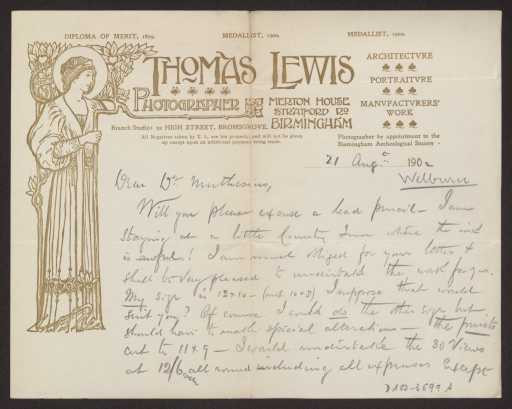 DIPLOMA OF MERIT, 1899. MEDALLIST, 1900. MEDALLIST, 1900.
THOMAS LEWIS
PHOTOGRAPHER
MERTON HOUSE
STRATFORD RD
BIRMINGHAM
Branch Studio: 10 HIGH STREET, BROMSGROVE.
All Negatives taken by T. L. are his property, and will not be given
up except upon an additional payment being made.
ARCHITECTVRE
PORTRAITVRE
MANVFACTVRERS'
WORK
Photographer by appointment to the
Birmingham Archæological Society
21 Aug 1902
Welburn
Dear Dr Muthesius,
Will you please excuse a lead pencil - I am
staying at a little Country Inn where the ink
is awful! I am much obliged for your letter &
shall be very pleased to undertake the work for you.
My size is 12 x 10 - (not 10 x 8) I suppose that would
suit you? Of course I could do the other size but
should have to make special alterations - the prints
cut to 11 x 9 - I would undertake the 30 views
at 12/6 all round including all expenses except